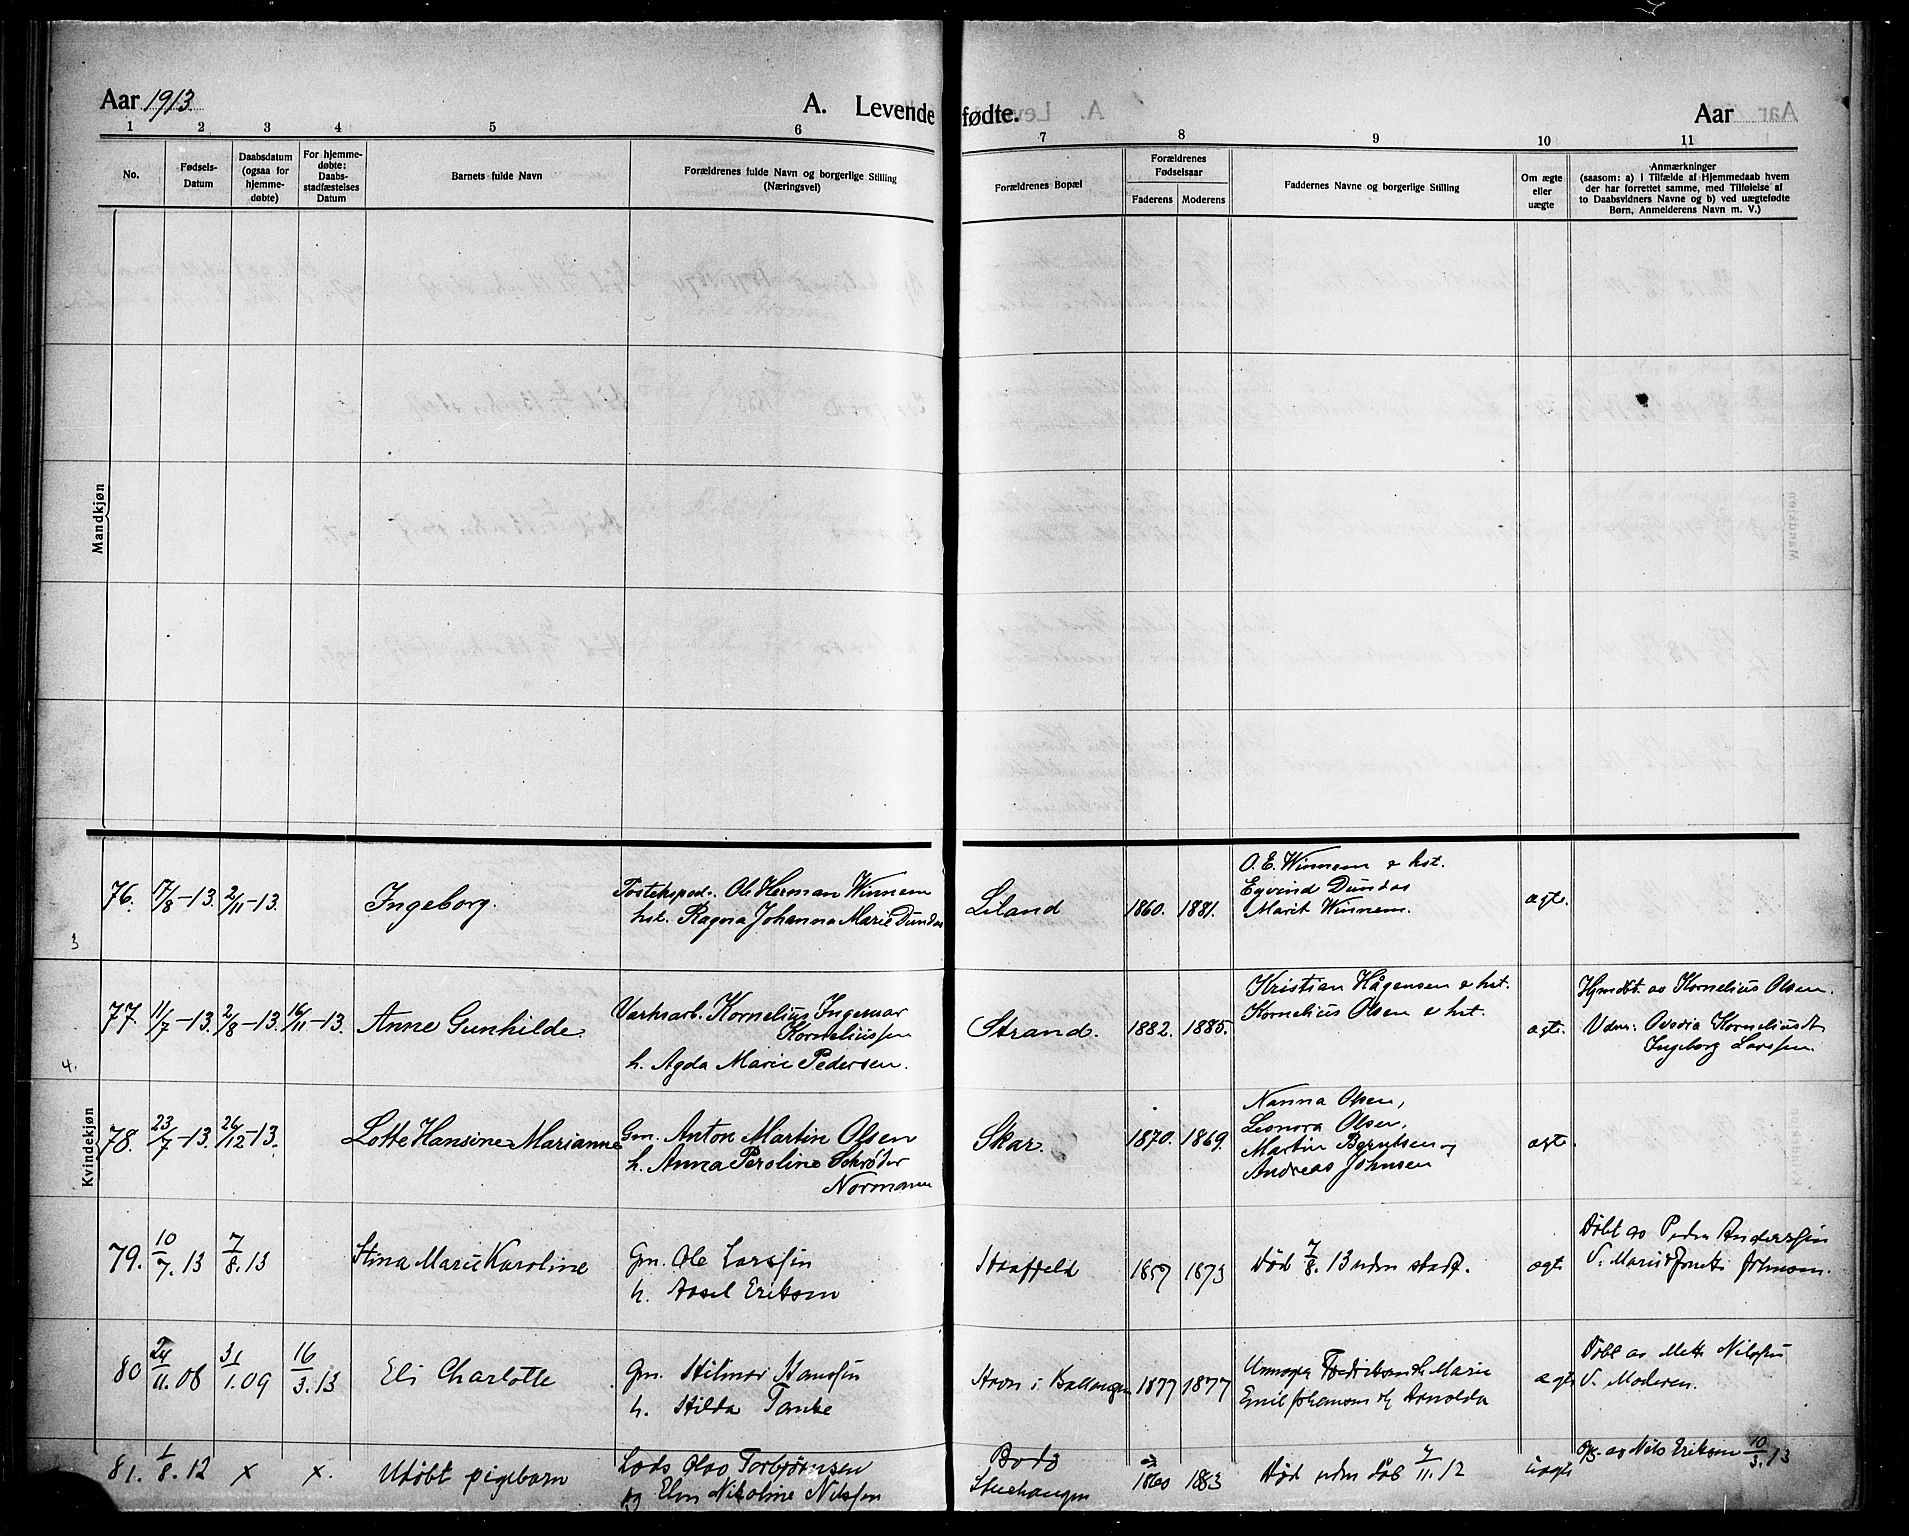 Aar 1913.
A. Levende
fødte.
Aar
1 2 3 4 5 6 7 8 9 10 11
No.
Fødsels-
Datum
Daabsdatum
(ogsaa for
hjemme-
døbte)
For hjemme-
døbte:
Daabs-
stadfæstelses
Datum
Barnets fulde Navn
Forældrenes fulde Navn og borgerlige Stilling
(Næringsvei)
Forældrenes Bopæl
Forældrenes
Fødselsaar
Faderens Moderens
Faddernes Navne og borgerlige Stilling
Om ægte
eller
uægte
Anmærkninger
(saasom: a) i Tilfælde af Hjemmedaab hvem
der har forrettet samme, med Tilføielse af
to Daabsvidners Navne og b) ved uægtefødte
Børn, Anmelderens Navn m. V.)
Mandkjøn
Kvindekjøn
3
76. 17/8-13. 2/11-13. Ingeborg.
Postekspod. Ole Herman Winnem
hst. Ragna Johanna Marie Dundas
Liland 1860. 1881.
O.E. Winnem & hst.
Eyvind Dundas
Marit Winnem.
ægte.
4.
77. 11/7-13. 2/8-13. 16/11-13. Anne Gunhilde.
Værksarb. Kornelius Ingemar
Korneliussen
h. Agda Marie Pedersen.
Strand. 1882. 1885.
Kristian Hågensen & hst.
Kornelius Olsen & hst.
ægte.
Hjmdbt. av Kornelius Olsen.
Vidner: Ovedia Korneliusdt
Ingeborg Larssen.
78. 23/7-13. 26/12-13. Lotte Hansine Marianne
Gm. Anton Martin Olsen
h. Anna Peroline Schrøder
Normann
Skar. 1870. 1869.
Nanna Olsen,
Leonora Olsen,
Martin Berntsen og
Andreas Johnsen
ægte
79. 10/7.13 7/8.13 Stina Marie Karoline
Gm. Ole Larssen
h. Assel Eriksen
1857 1873
Død 7/8.13 uden stadf.
ægte
Døbt av Peder Anderssen
V. Marie Johnsen.
80 24/11.08 31/1.09 16/3.13 Eli Charlotte
Gm. Hilmar Hanssen
h. Hilda Tanke
Havn i Ballangen 1877 1877
Fredriksen Marie
Emil Johansens Arnolda
ægte
Døbt av Mette Nilssen
V. Moderen.
81. 1/8.12 x x. Udøbt pigebarn
Lods Olav Torbjørnsen
og Elen Nikoline Nilssen
Bodø
1860 1883
Død uden dåb 7/11.12
uægte
av Nils Eriksen 10/3.13